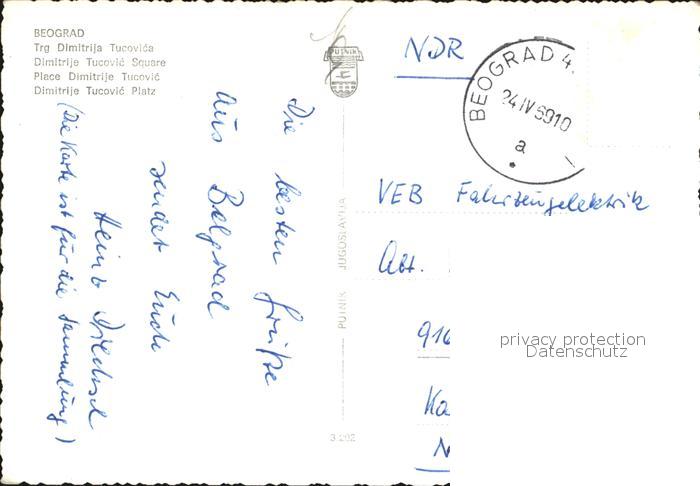 BEOGRAD
Trg Dimitrija Tucovića
Dimitrije Tucović Square
Place Dimitrije Tucović
Dimitrije Tucović Platz
PUTNIK
NDR
BEOGRAD 4.
24 IV 69 10
a
Die besten Grüße
aus Belgrad
sendet Euch
Heinz
(Die Karte ist für die Sammlung)
PUTNIK JUGOSLAVIJA
3.202
VEB Fahrzeugelektrik
Abt.
916
Ka
N
privacy protection
Datenschutz